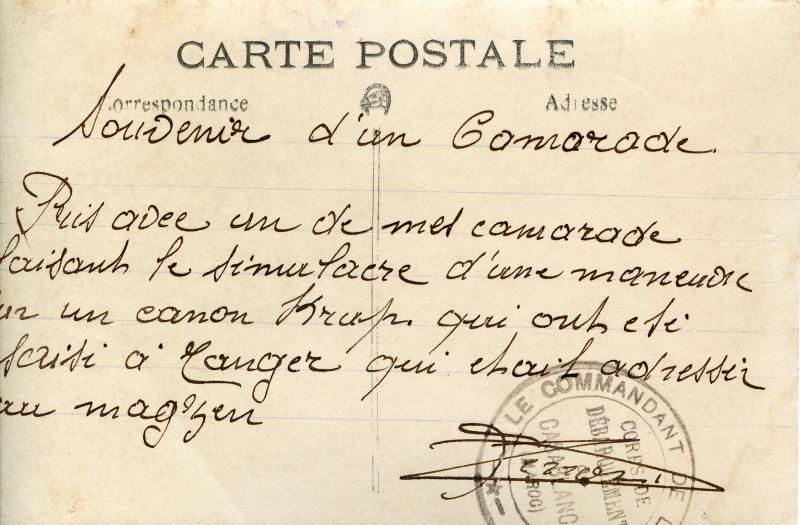 CARTE POSTALE
Correspondance
Adresse
Souvenir d'un Camarade.
Pris avec un de mes camarade
faisant le simulacre d'une
sur un canon Krup. qui ont eté
saisi à Tanger qui etait adressir
au magzen
LE COMMANDANT DE
CORPS DE
DÉBARQUEMENT
CASABLANC
(MAROC)